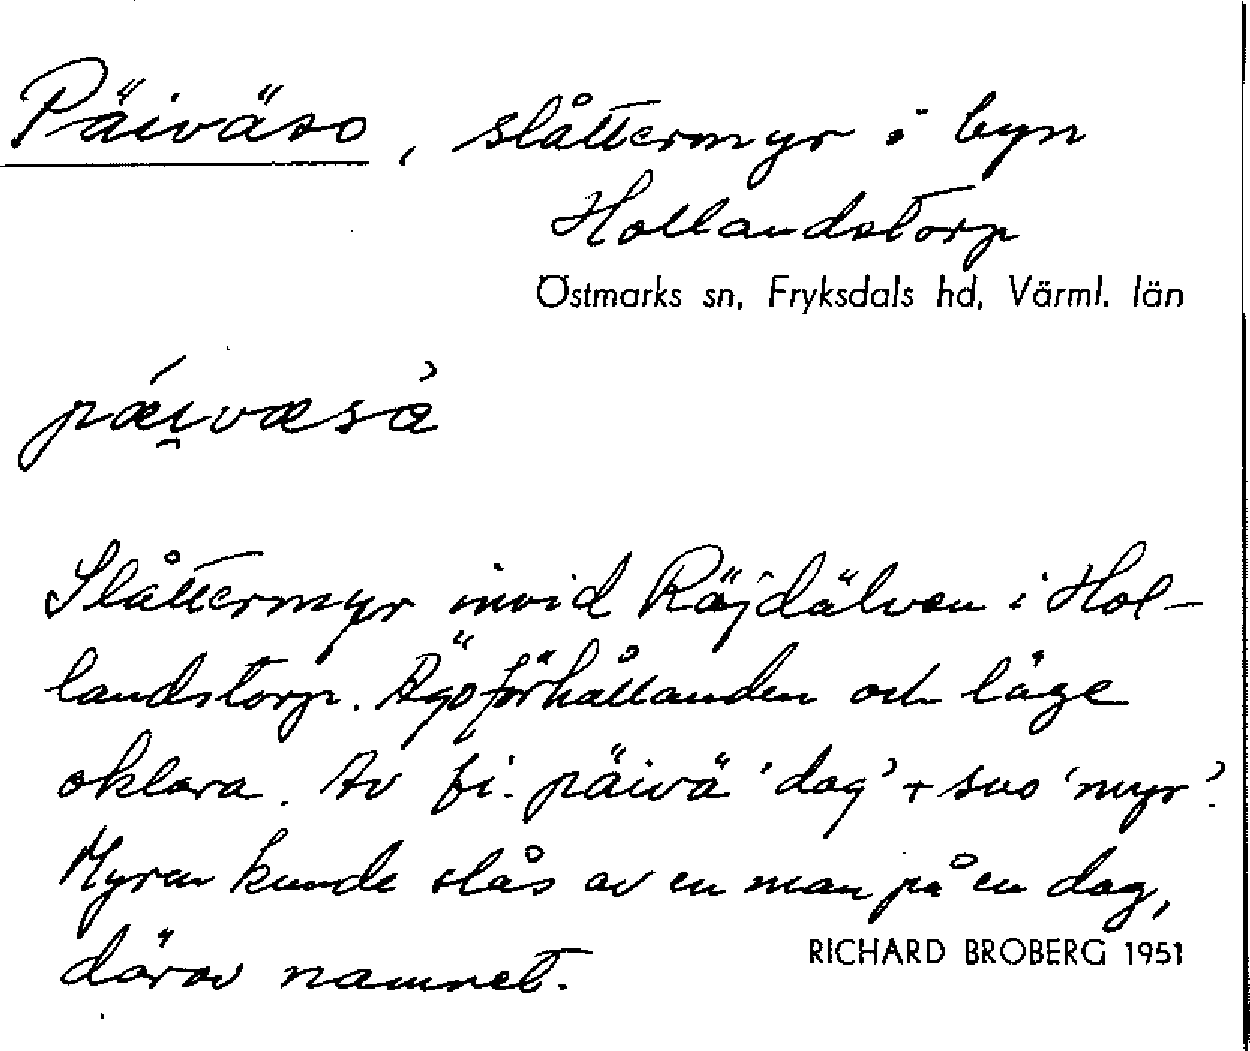 Päiväso, slåttermyr i byn
Hollandstorp
Östmarks sn, Fryksdals hd, Värml. län
pǽi̯væsὰ
Slåttermyr invid Röjdälven i Hol-
landstorp. Ägoförhållanden och läge
oklara. Av fi. päivä 'dag' + suo 'myr'.
Myren kunde slås av en man på en dag,
därav namnet.
RICHARD BROBERG 1951